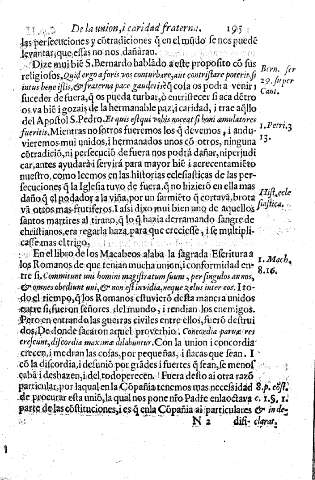 De la union, i caridad fraterna. 195
las persecuciones y cõtradiciones q̃ en el mũdo se nos puedẽ
levantar, que essas no nos dañarau.
Dize mui biẽ S. Bernardo hablãdo a este proposito cõ sus
religiosos. Quid ergo aforis vos conturbare, aut contristare poterit, si
intus bene istis, & fraterna pace gaudetis? q̃ cosa os podrá venir i
suceder de fuera, q̃ os pueda turbar, ò entristecer si acá dẽtro
os va biẽ i gozais de la hermanable paz, i caridad, i trae aq̃llo
del Apostol S. Pedro. Et quis est qui vobis noceat si boni amulatores
fueritis. Mientras nosotros fueremos los q̃ devemos, i andu-
vieremos mui unidos, i hermanados unos cõ otros, ninguna
cõtradiciõ, ni persecuciõ de fuera nos podrá dañar, ni perjudi
car, antes ayudará i servirá para mayor biẽ i acrecentamiẽto
nuestro, como leemos en las historias eclesiasticas de las per-
secuciones q̃ la Iglesia tuvo de fuera, q̃ no hizierõ en ella mas
daño q̃ el podador a la viña, por un sarmiẽto q̃ cortavã, brota
vã otros mas frutiferos. I assi dixo mui bien uno de aquellos
santos martires al tirano, q̃ lo q̃ hazia derramando sangre de
christianos, era regar la haza, para que creciesse, i se multipli-
casse mas el trigo.
En el libro de los Macabeos alaba la sagrada Escritura a
los Romanos de que tenian mucha union, i conformidad en-
tre si. Committunt uni homini magistratum suum, per singulos annos,
& omnes obediunt uni, & non est invidia, neque zelus inter eos. I to-
do el tiempo, q̃ los Romanos estuvierõ desta manera unidos
entre si, fueron señores del mundo, i rendian los enemigos.
Pero en entrando las guerras civiles entre ellos, fuerõ destrui
dos. De donde sacaron aquel proverbio. Concordia parvæ res
crescunt, discordia maxima dilabuntur. Con la union i concordia
crecen, i medran las cosas, por pequeñas, i flacas que sean. I
cõ la discordia, i desuniõ por grãdes i fuertes q̃ sean, se menos
cabã i deshazen, i del todo perecen. Fuera desto ai otra razõ
particular, por la qual en la Cõpañia tenemos mas necessidad
de procurar esta uniõ, la qual nos pone nr̃o Padre en la octava
parte de las cõstituciones, i es q̃ en la Cõpañia ai particulares
N 2 difi-
Bern. ser
29. super
Cant.
1. Petri. 3
13.
Hist. ecle
siastica.
1. Mach.
8. 16.
8. p. cõst.
c. 1. §. 1.
& in de-
clarat.